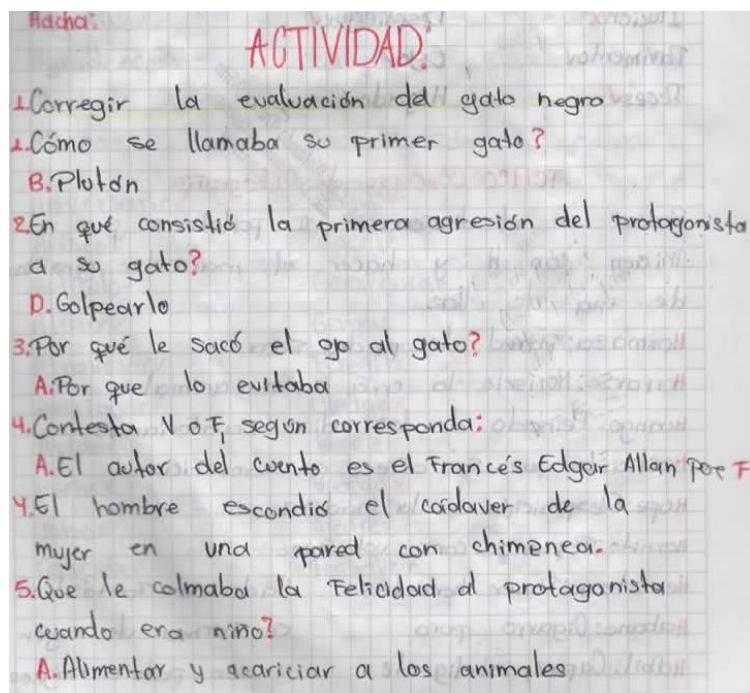 Hacha:
ACTIVIDAD:
1.Corregir la evaluación del gato negro
1.Cómo se llamaba su primer gato?
B.Plutón
2.En qué consistió la primera agresión del protagonista
a su gato?
D.Golpearlo
3.Por qué le sacó el ojo al gato?
A.Por que lo evitaba
4.Contesta V o F, segun corresponda:
A.El autor del cuento es el Francés Edgar Allan Poe F
4.El hombre escondió el cadaver de la
mujer en una pared con chimenea.
5.Que le colmaba la Felicidad al protagonista
cuando era niño?
A.Alimentar y acariciar a los animales